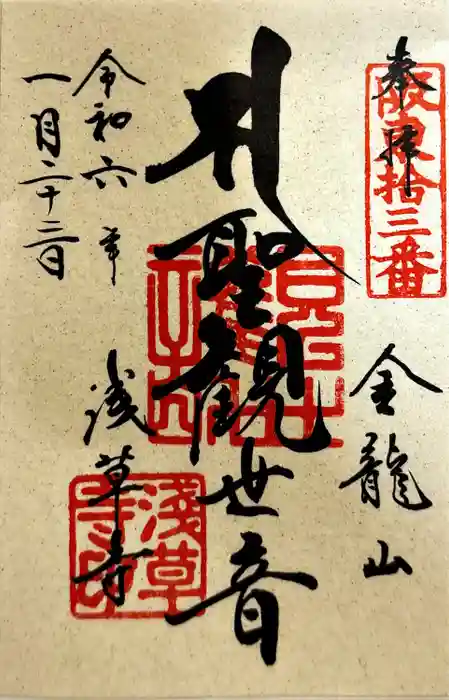 奉拝
阪東拾三番
金龍山
聖観世音
浅草寺
淺草寺印
令和六年
一月二十三日